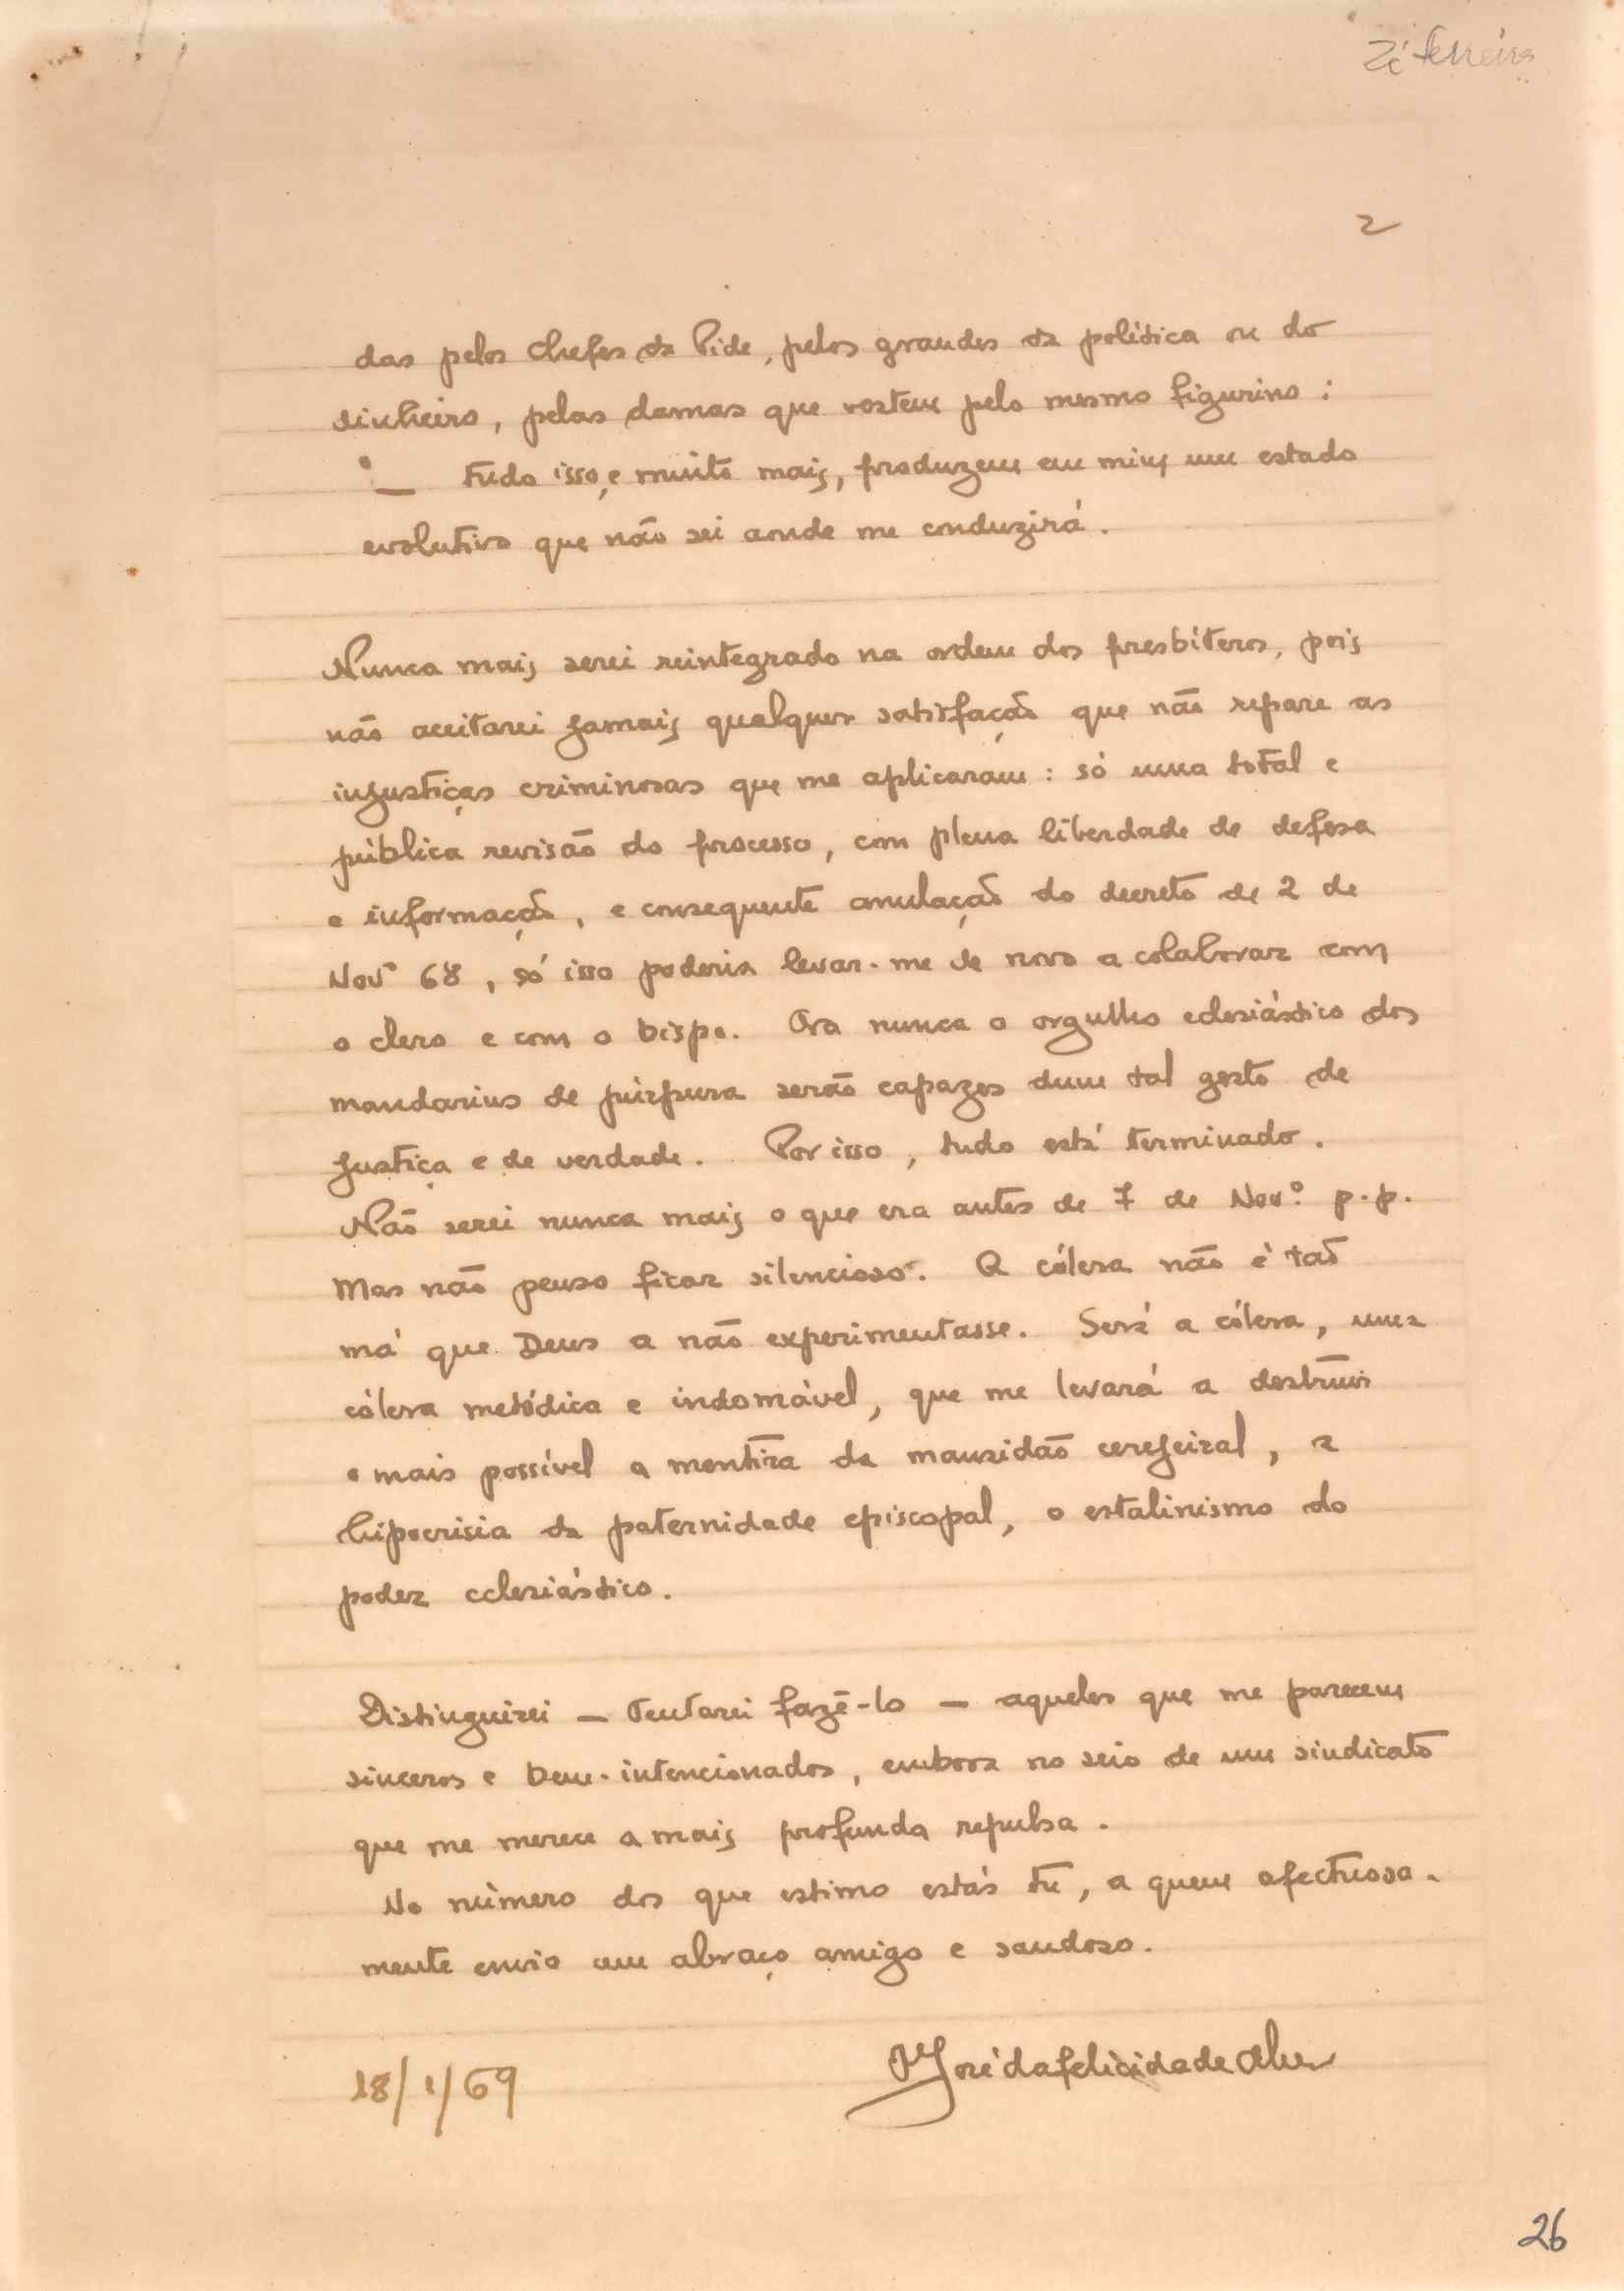 Zé Ferreira
2
das pelos chefes da Pide, pelos grandes da política ou do
dinheiro, pelas damas que vestem pelo mesmo figurino :
— tudo isso, e muito mais, produzem em mim um estado
evolutivo que não sei aonde me conduzirá.
Nunca mais serei reintegrado na ordem dos presbíteros, pois
não aceitarei jamais qualquer satisfação que não repare as
injustiças criminosas que me aplicaram : só uma total e
pública revisão do processo, com plena liberdade de defesa
e informação, e consequente anulação do decreto de 2 de
Novº 68, só isso poderia levar-me de novo a colaborar com
o clero e com o bispo. Ora nunca o orgulho eclesiástico dos
mandarins de púrpura serão capazes dum tal gesto de
justiça e de verdade. Por isso, tudo está terminado.
Não serei nunca mais o que era antes de 7 de Nov.º p.p.
Mas não penso ficar silencioso. A cólera não é tão
má que Deus a não experimentasse. Será a cólera, uma
cólera metódica e indomável, que me levará a destruir
o mais possível a mentira da mansidão cerejeiral, a
hipocrisia da paternidade episcopal, o estalinismo do
poder eclesiástico.
Distinguirei — tentarei fazê-lo — aqueles que me parecem
sinceros e bem-intencionados, embora no seio de um sindicato
que me merece a mais profunda repulsa.
No número dos que estimo estás tu, a quem afectuosa-
mente envio um abraço amigo e saudoso.
18/1/69
José da Felicidade Alves
26